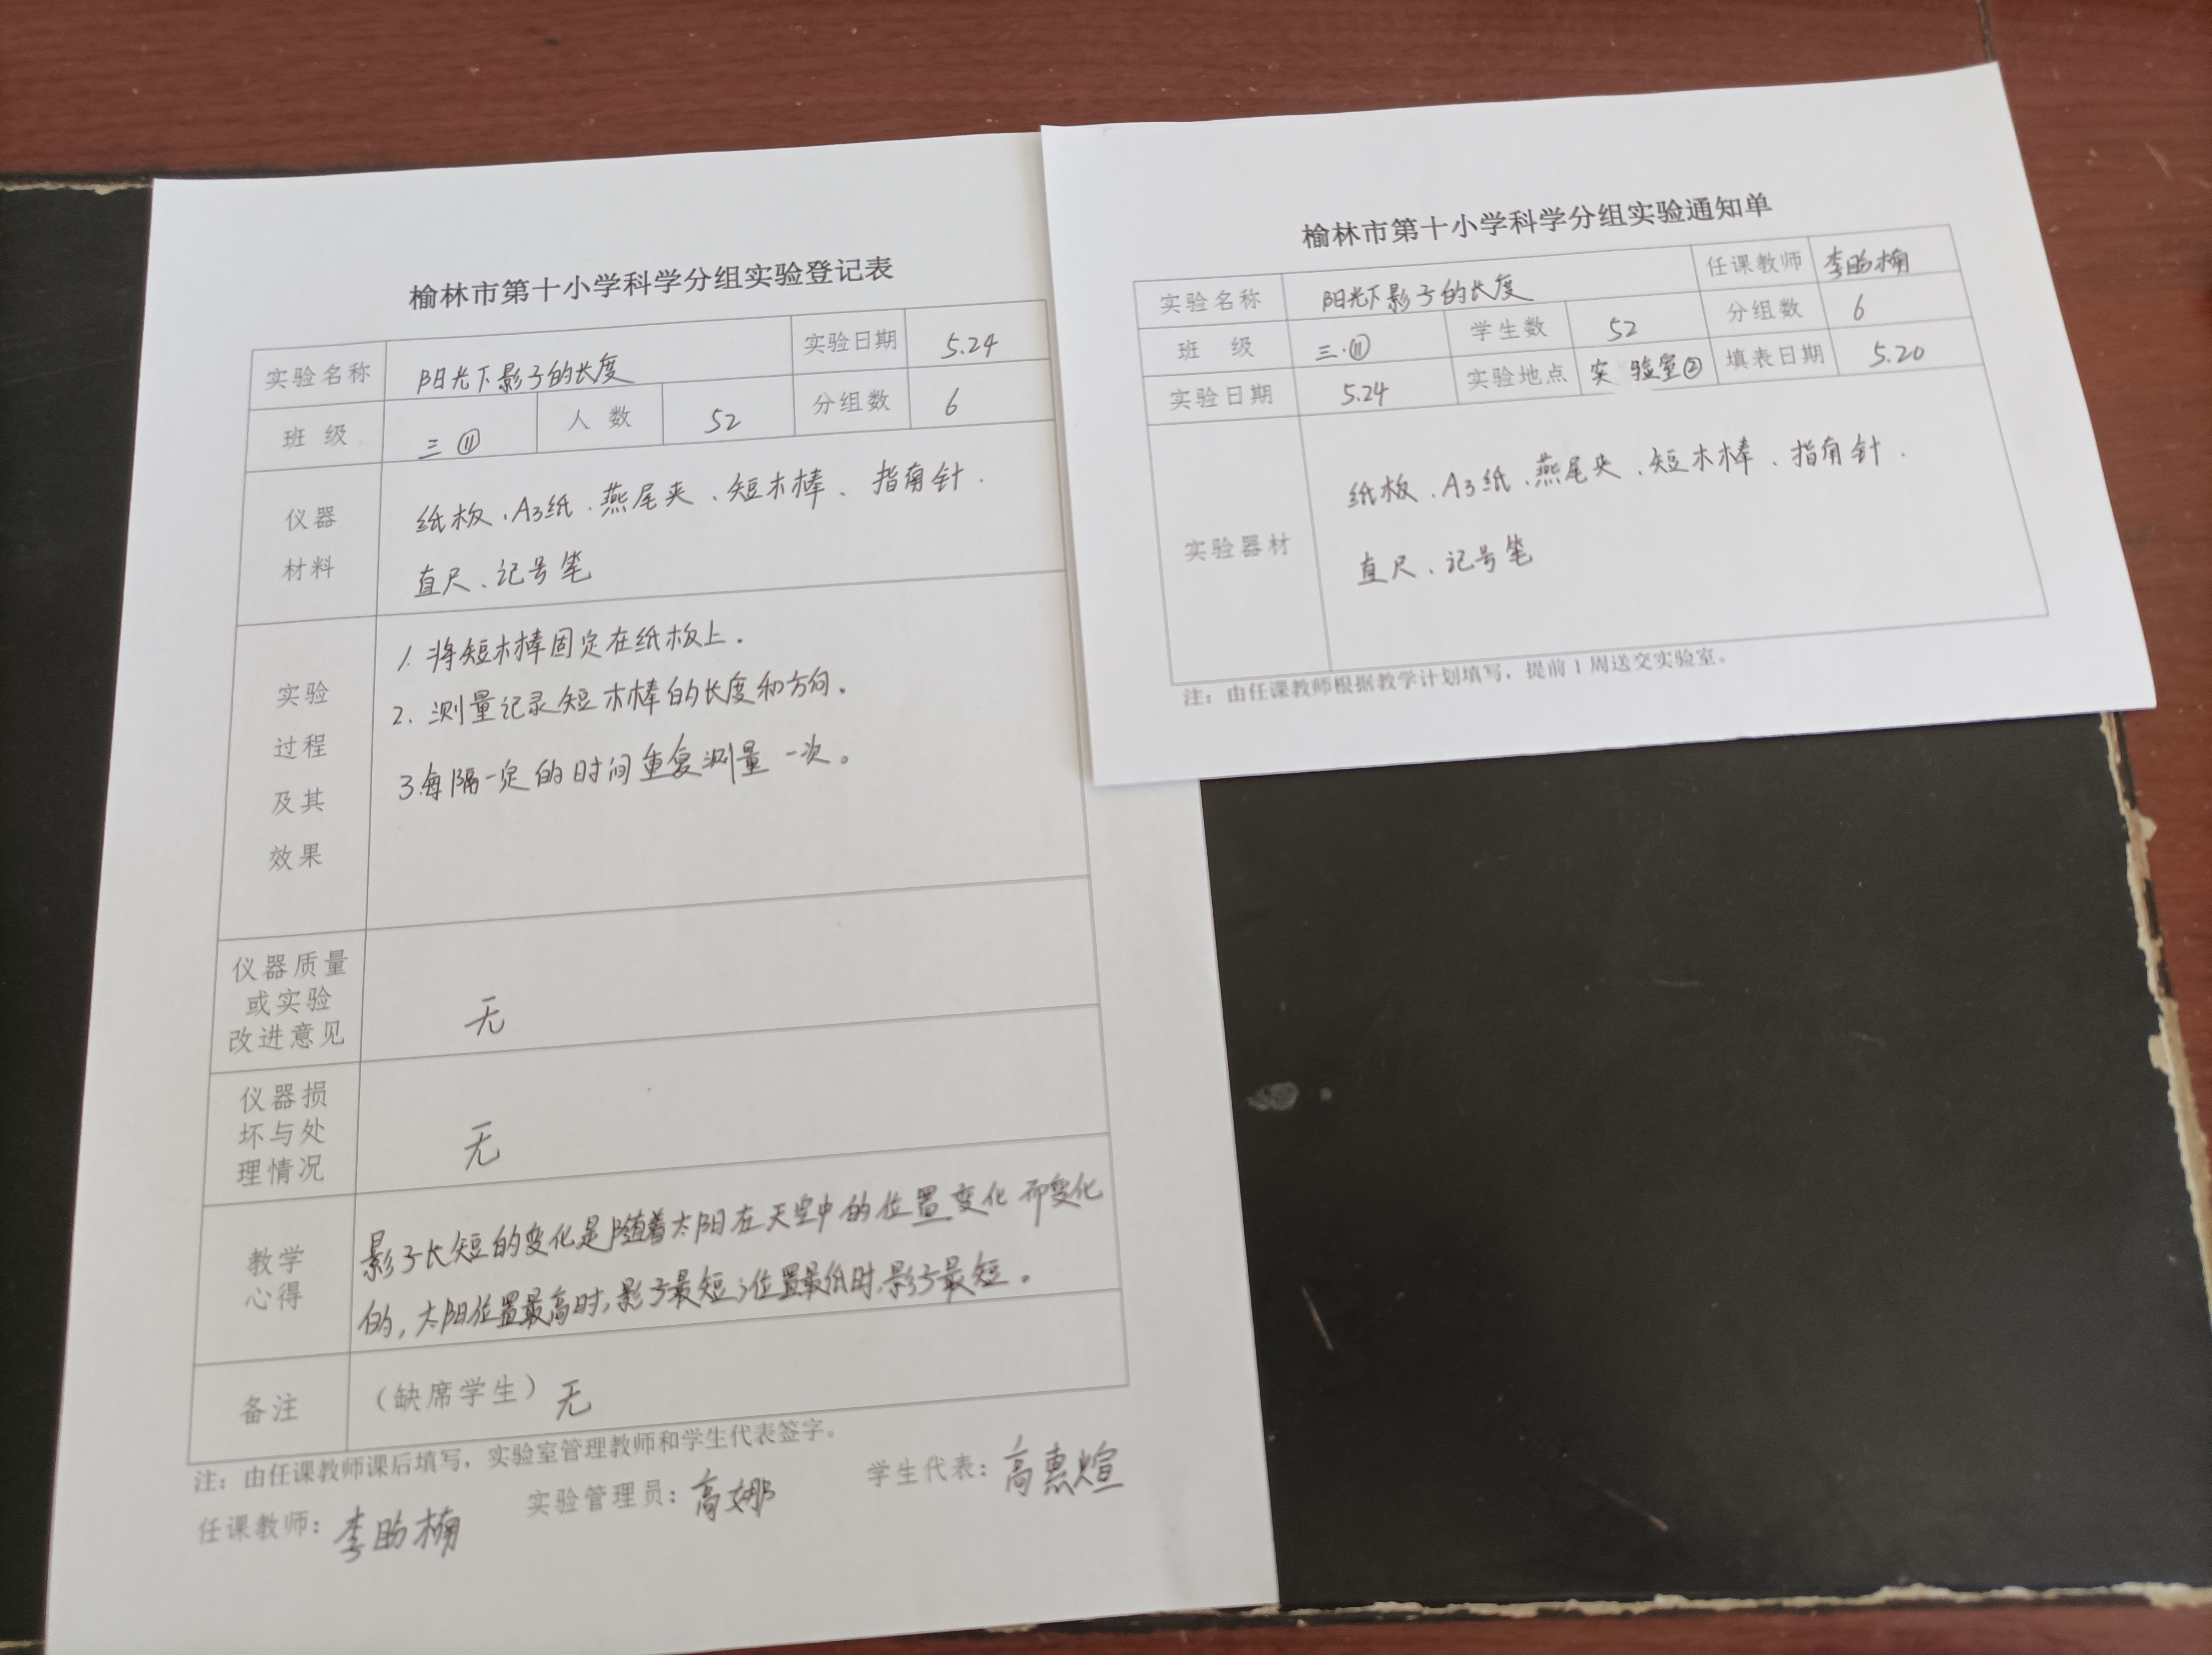 榆林市第十小学科学分组实验登记表
实验名称 阳光下影子的长度 实验日期 5.24
班 级 三⑪ 人 数 52 分组数 6
仪器
材料
纸板、A3纸、燕尾夹、短木棒、指南针.
直尺、记号笔
实验
过程
及其
效果
1. 将短木棒固定在纸板上.
2. 测量记录短木棒的长度和方向。
3.每隔一定的时间重复测量一次。
仪器质量
或实验
改进意见
无
仪器损
坏与处
理情况
无
教学
心得
影子长短的变化是随着太阳在天空中的位置变化而变化
的,太阳位置最高时,影子最短;位置最低时,影子最短。
备注 (缺席学生)无
注:由任课教师课后填写,实验室管理教师和学生代表签字。
任课教师:李昀楠 实验管理员:高娜 学生代表:高惠煊
榆林市第十小学科学分组实验通知单
实验名称 阳光下影子的长度 任课教师 李昀楠
班 级 三·⑪ 学生数 52 分组数 6
实验日期 5.24 实验地点 实验室② 填表日期 5.20
实验器材
纸板、A3纸、燕尾夹、短木棒、指南针.
直尺、记号笔
注:由任课教师根据教学计划填写,提前1周送交实验室。